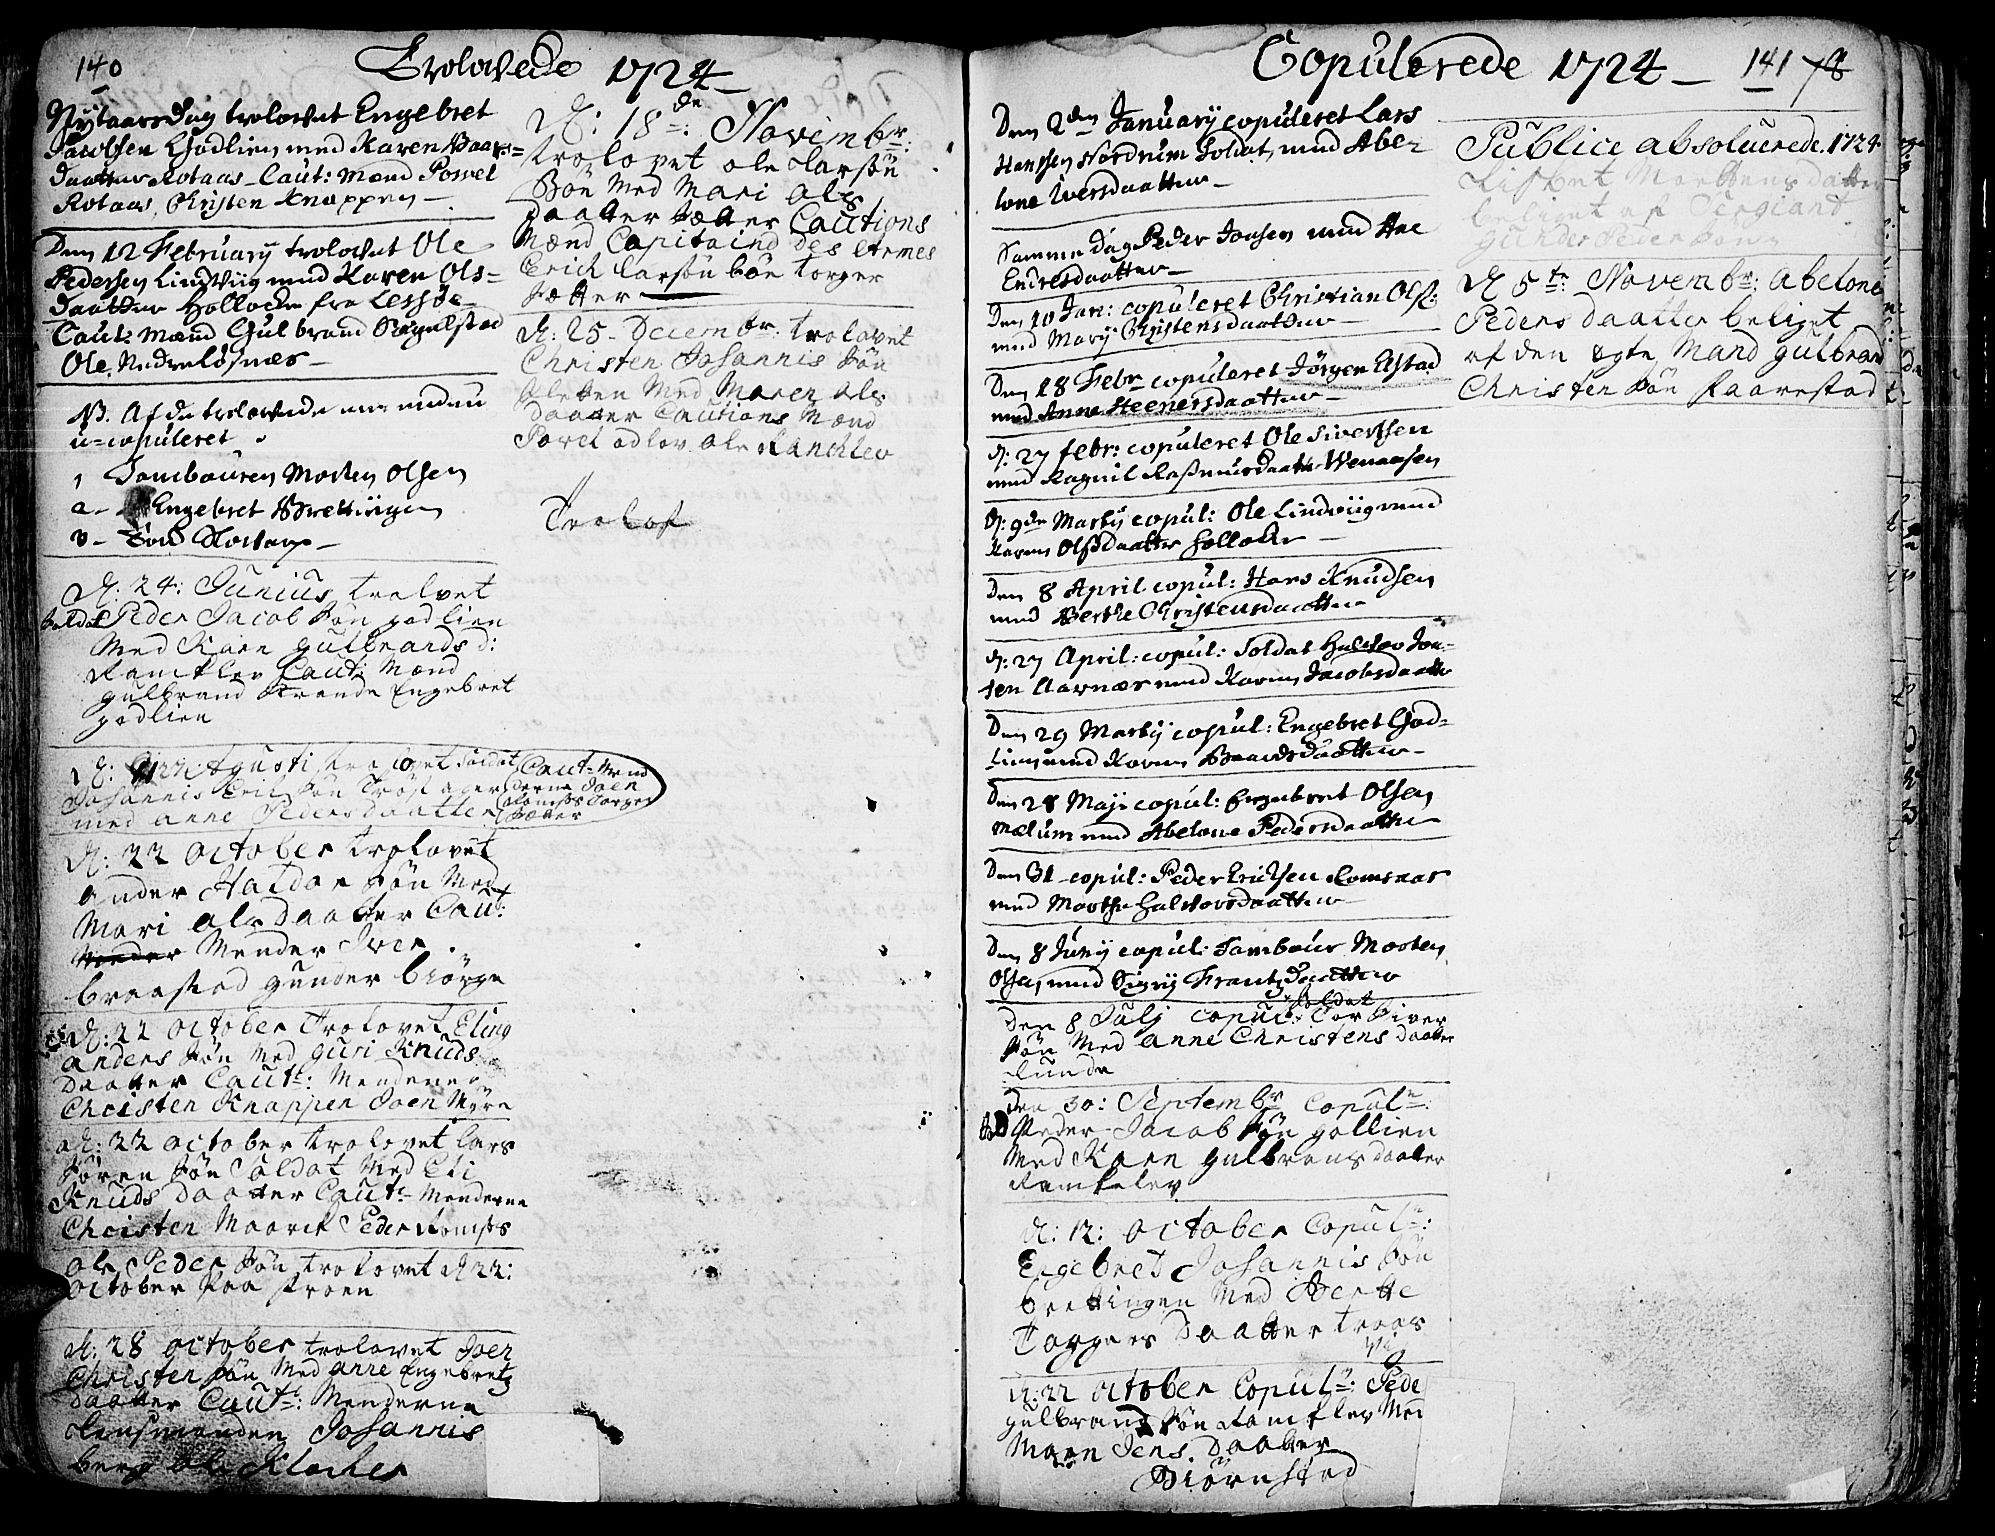 140
Trolovede 1724
Nÿtaarsdag trolovet Engebret
Jacobsen Godlien med Karen Baars=
daatter Rotaas Caut: Mænd Povel
Rotaas, Christen Knappen
Den 12 Februarÿ trolovet Ole
Pedersen Lindviig med Karen Ols=
daatter Hollocke fra Lessøe
Caut: Mænd Gulbrand Segelstad
Ole Nedreløsnæs
NB. Af de trolovede ere endnu
u=copuleret
1 Tambouren Morten Olsen
2 Engebret Brettingen
3
d: 24: Junius trolvet
Soldat Peder Jacob søn godlien
Med Karn gulbrands d:
Ramklev Caut: Mænd
gulbrand Strande Engebret
godlien
d: 27: Agusti trolovet Soldat
Johannis søn
med anne Pedersdaatter
Caut: Mend
derne Joen
Torger
sætter
d: 22 october trolovet
ander Haldor søn Med
Mari ols Daatter Caut:
Mender Iver
braastad gunder biørge
d: 22 october Trolovet Eling
anders søn Med guri Knuds
Daatter Caut: Menderne
Christen Knappen Joen Myre
d: 22 october trolovet lars
søren søn Soldat Med Eli
Knuds daatter Caut: Menderne
Christen Maarik Peder Romsos
ole Peder søn trolovet d 22:
october paa stroen
d: 28 october trolovet Joen
Christen søn Med anne Engebrets
daatter Caut: Menderne
lensmanden Johannis
berg ole Klocker
d: 18de: Novembr:
trolovet ole larsøn
Bøn Med Mari ols
daatter sætter Cautions
Mænd Capitaind des Armes
Erich larsøn bøn torger
sætter
d: 25 Decembr: trolovit
Christen Johannis søn
Med Maren ols
daatter Cautions Mænd
Povel odlov ole Ranklev
Trolof
Copulerede 1724
141 78
Den 2den Januarÿ copuleret Lars
Hanssen Nordrum Soldat, med Abe=
lone Iversdaatter
Samme dag Peder Jonsen med Aae
Endresdaatter
Den 10 Jan: copuleret Christian Ols:
med Marÿ Christensdaatter
Den 18 Febr copuleret Jörgen Elstad
med Anne Steenersdaatter
d: 27 febr: copuleret Ole Sivertsen
med Ragnil Rasmusdaatter Wenaasen
d: 9de Martÿ copul: Ole Lindviig med
Karen Olsdaatter Hollocke
Den 8 April copul: Hans Knudsen
med Berthe Christensdaatter
d: 27 April: copul: Soldat Halvor Jon=
sen Aarnæs med Karen Jacobsdaatter
Den 29 Martÿ copul: Engebret God=
lien med Karen Baardsdaatter
Den 28 Maji copul: Engebret Olsen
Mælum med Abelone Pedersdaatter
Den 31 copul: Peder Erichsen Romsaas
med Marthe Halvorsdaatter
Den 8 Junÿ copul: Tambour Morten
Olsen med Sigrÿ Frantzdaatter
Den 8 Julj copul: Soldat Tor Siver
søn Med anne Christens daatter
Lunde
den 30: Septembr Copul:
Peder Jacob søn gollien
Med Karn gulbrans daatter
Ramkelev
d: 12: october Copul:
Engebret Johannis søn
brettingen Med Berte
Torgers Daatter traas
vig
d: 22 october Copul: Pede
gulbrand søn Ramklev Med
Maren Jens Daatter
Biørnstad
Publice absoluerede 1724
Lisbet Mortens datter
beliget af Sergiant
gunder Peder søn
d 5te: Novembr: abelone
Peders daatter beliget
af den ægte Mand gulbrand
Christen søn Faarestad